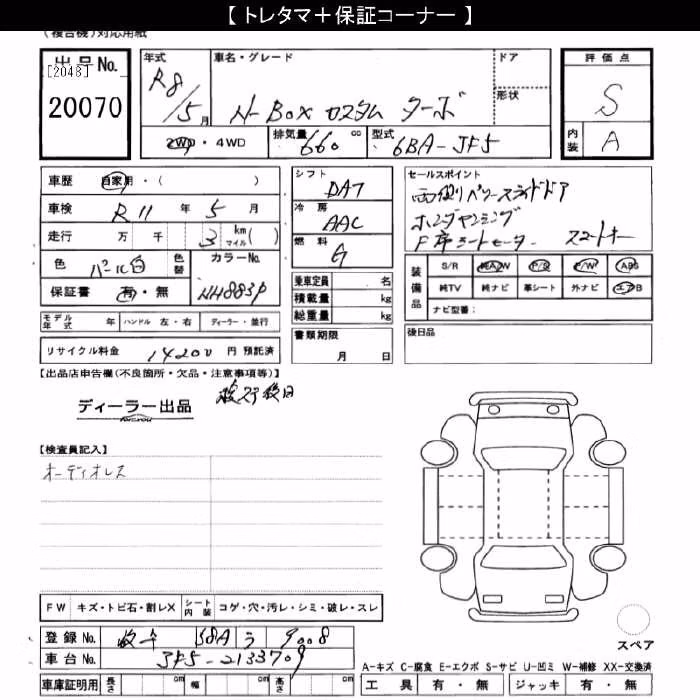 【 トレタマ＋保証コーナー 】
(複合機)対応用紙
出品No.
[2048]
20070
年式
R8/5月
車名・グレード
N-BOX カスタム ターボ
ドア
形状
評価点
S
内装
A
2WD・4WD
排気量
660 cc
型式
6BA-JF5
車歴
自家用・( )
車検
R11 年 5 月
走行
万 千 3 km マイル( )
色
パール白
色替
カラーNo.
NH883P
保証書
有・無
シフト
DAT
冷房
AAC
燃料
G
乗車定員 名
積載量 kg
総重量 kg
セールスポイント
両側パワースライドドア
ホンダセンシング
スマートキー
装備品
S/R 純AW P/S P/W ABS
純TV 純ナビ 革シート 外ナビ エアB
ナビ型番:
モデル年式 年 ハンドル 左・右 ディーラー・並行
書類期限
月 日
後日品
リサイクル料金 14200 円 預託済
【出品店申告欄(不良箇所・欠品・注意事項等)】
ディーラー出品
【検査員記入】
オーディオレス
FW キズ・トビ石・割レX シート内装 コゲ・穴・汚レ・シミ・破レ・スレ
登録No. 58A う 9008
車台No. JF5-2133709
車庫証明用 長さ cm 幅 cm 高さ cm
スペア
A-キズ C-腐食 E-エクボ S-サビ U-凹ミ W-補修 XX-交換済
工具 有・無 ジャッキ 有・無